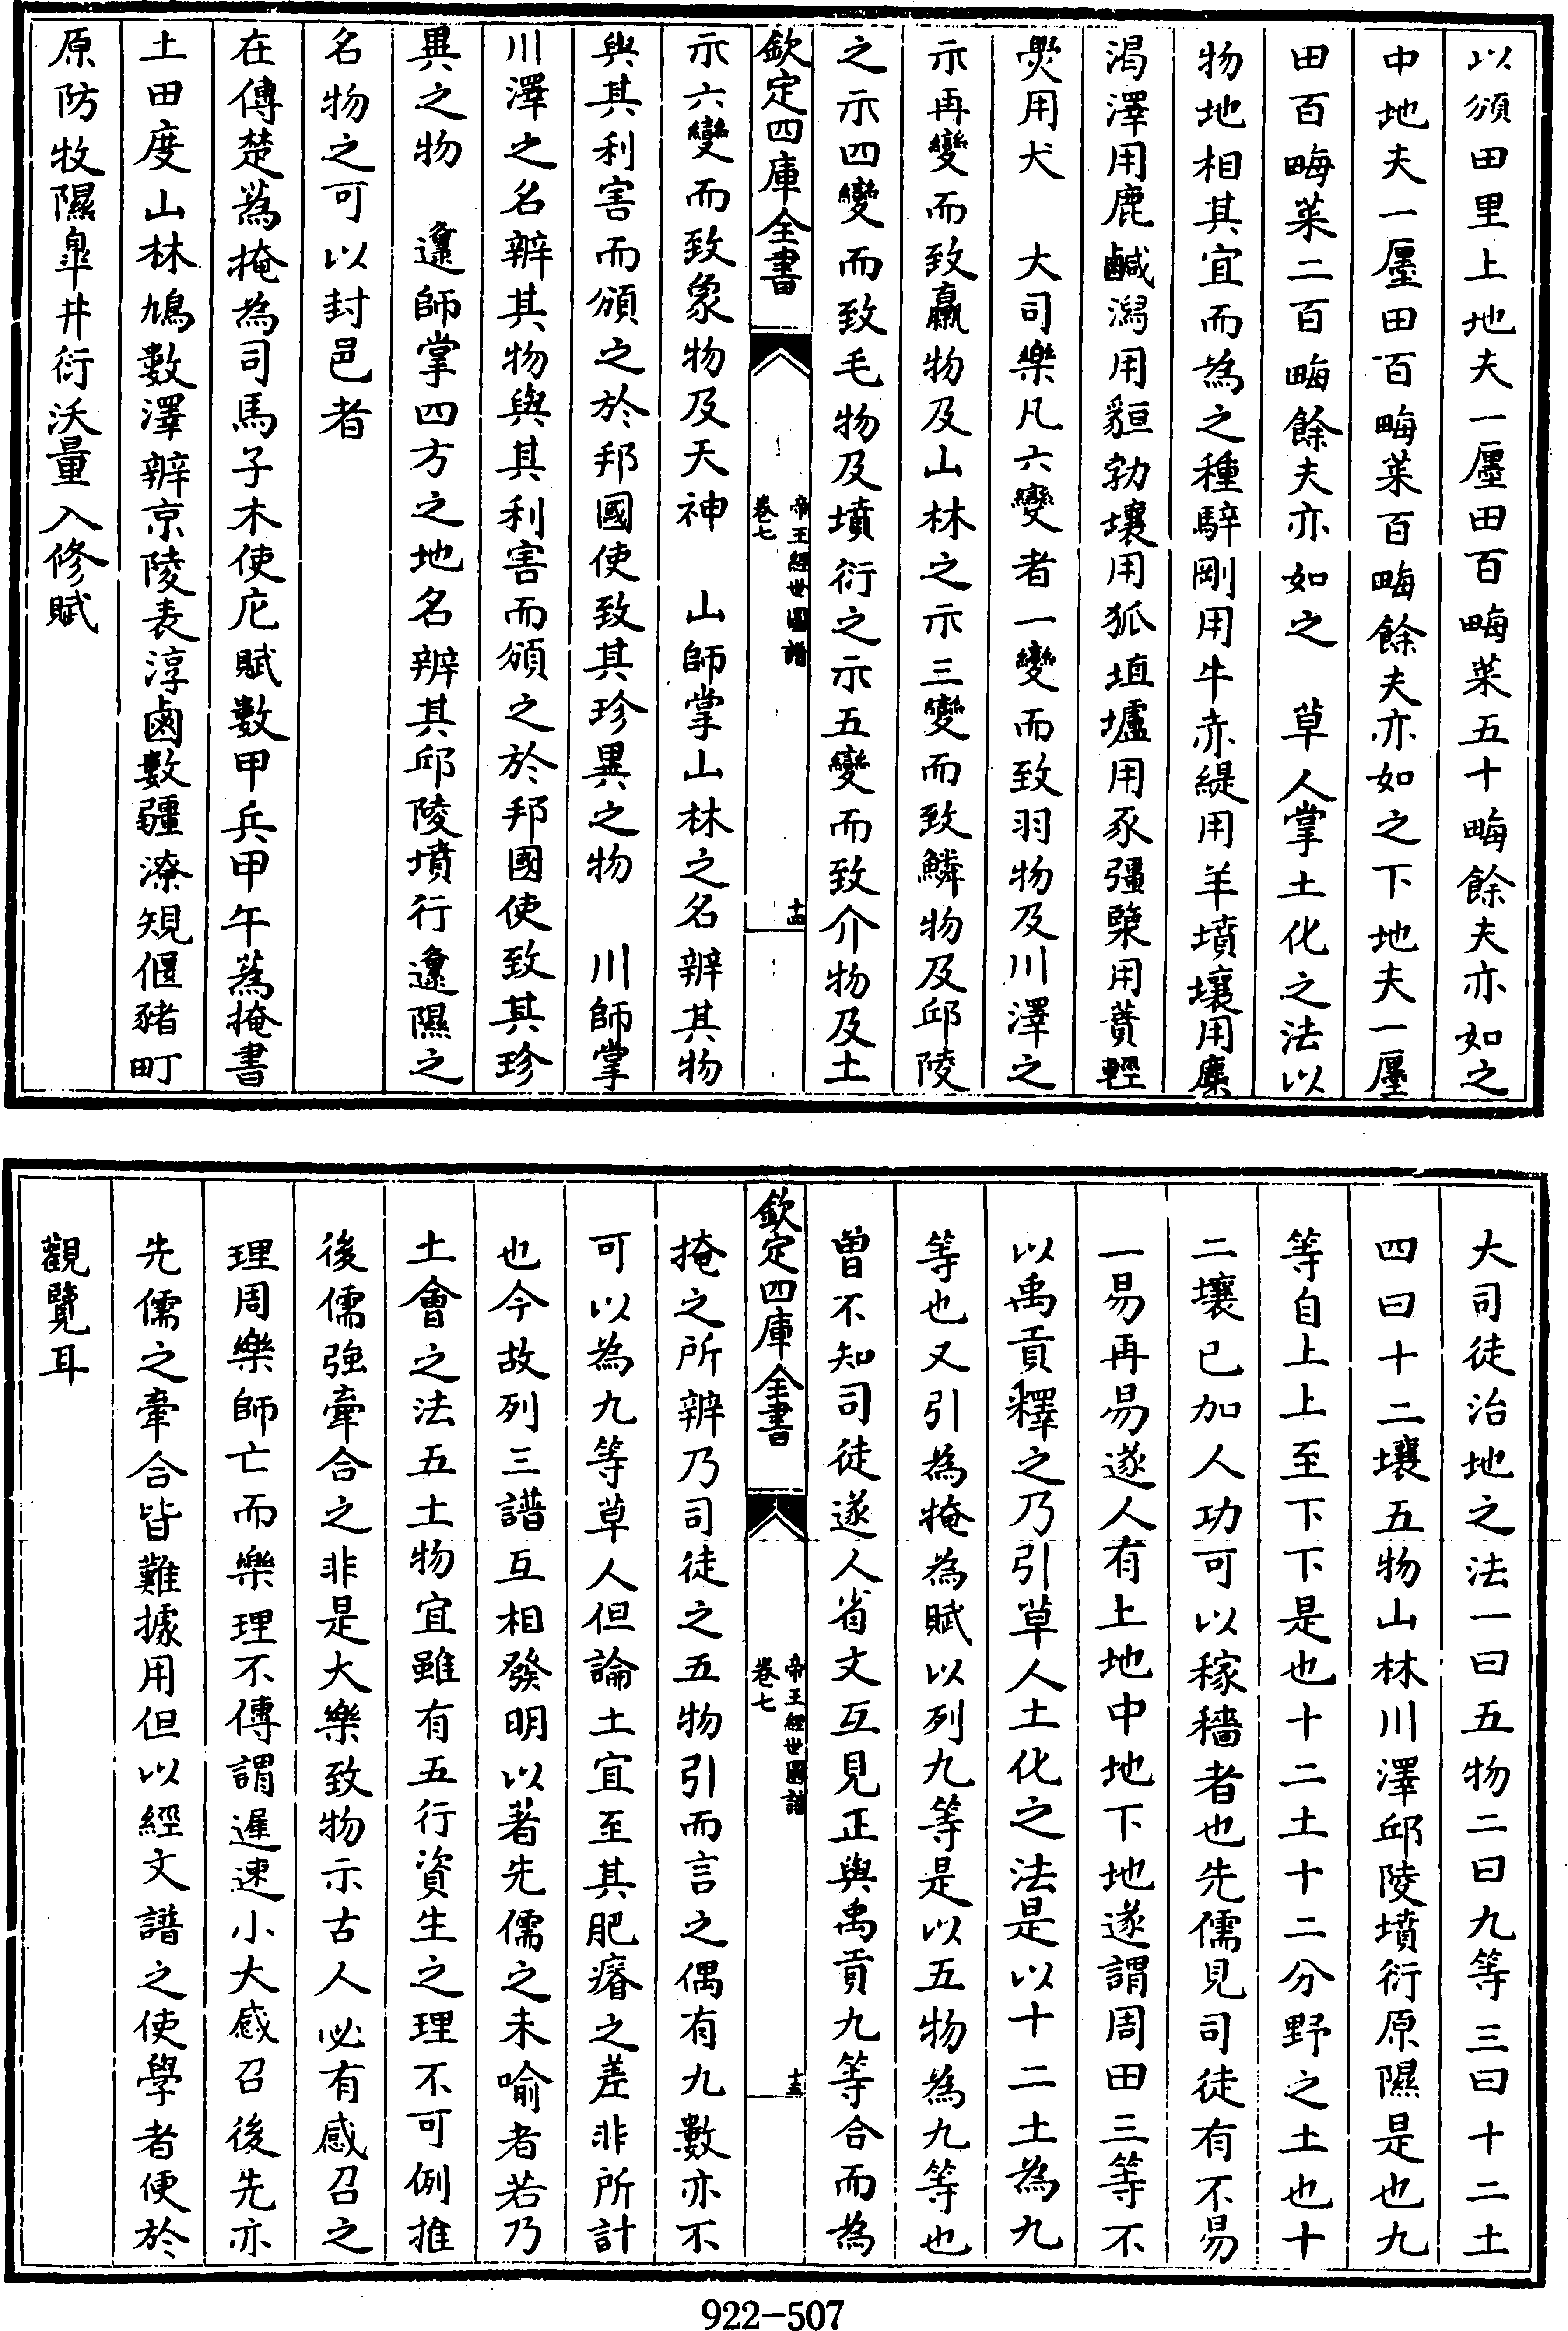 以頒田里上地夫一廛田百畮菜五十畮餘夫亦如之
中地夫一廛田百畮菜百畮餘夫亦如之下地夫一廛
田百畮菜二百畮餘夫亦如之　草人掌土化之法以
物地相其宜而為之種騂剛用牛赤緹用羊墳壤用麋
渴澤用鹿鹹潟用貆勃壤用狐埴壚用豕彊㯺用蕡輕
㷸用犬　大司樂凡六變者一變而致羽物及川澤之
示再變而致臝物及山林之示三變而致鱗物及邱陵
之示四變而致毛物及墳衍之示五變而致介物及土
欽定四庫全書　帝王經世圖譜　卷七　十四
示六變而致象物及天神　山師掌山林之名辨其物
與其利害而頒之於邦國使致其珍異之物　川師掌
川澤之名辨其物與其利害而頒之於邦國使致其珍
異之物　邍師掌四方之地名辨其邱陵墳行邍隰之
名物之可以封邑者
在傳楚蒍掩為司馬子木使庀賦數甲兵甲午蒍掩書
土田度山林鳩數澤辨京陵表淳鹵數疆潦規偃豬町
原防牧隰皐井衍沃量入修賦
大司徒治地之法一曰五物二曰九等三曰十二土
四曰十二壤五物山林川澤邱陵墳衍原隰是也九
等自上上至下下是也十二土十二分野之土也十
二壤已加人功可以稼穡者也先儒見司徒有不易
一易再易遂人有上地中地下地遂謂周田三等不
以禹貢釋之乃引草人土化之法是以十二土為九
等也又引為掩為賦以列九等是以五物為九等也
曽不知司徒遂人省文互見正與禹貢九等合而為
欽定四庫全書　帝王經世圖譜　卷七　十五
掩之所辨乃司徒之五物引而言之偶有九數亦不
可以為九等草人但論土宜至其肥瘠之差非所計
也今故列三譜互相發明以著先儒之未喻者若乃
土會之法五土物宜雖有五行資生之理不可例推
後儒強牽合之非是大樂致物示古人必有感召之
理周樂師亡而樂理不傳謂遲速小大感召後先亦
先儒之牽合皆難據用但以經文譜之使學者便於
觀覽耳
922-507